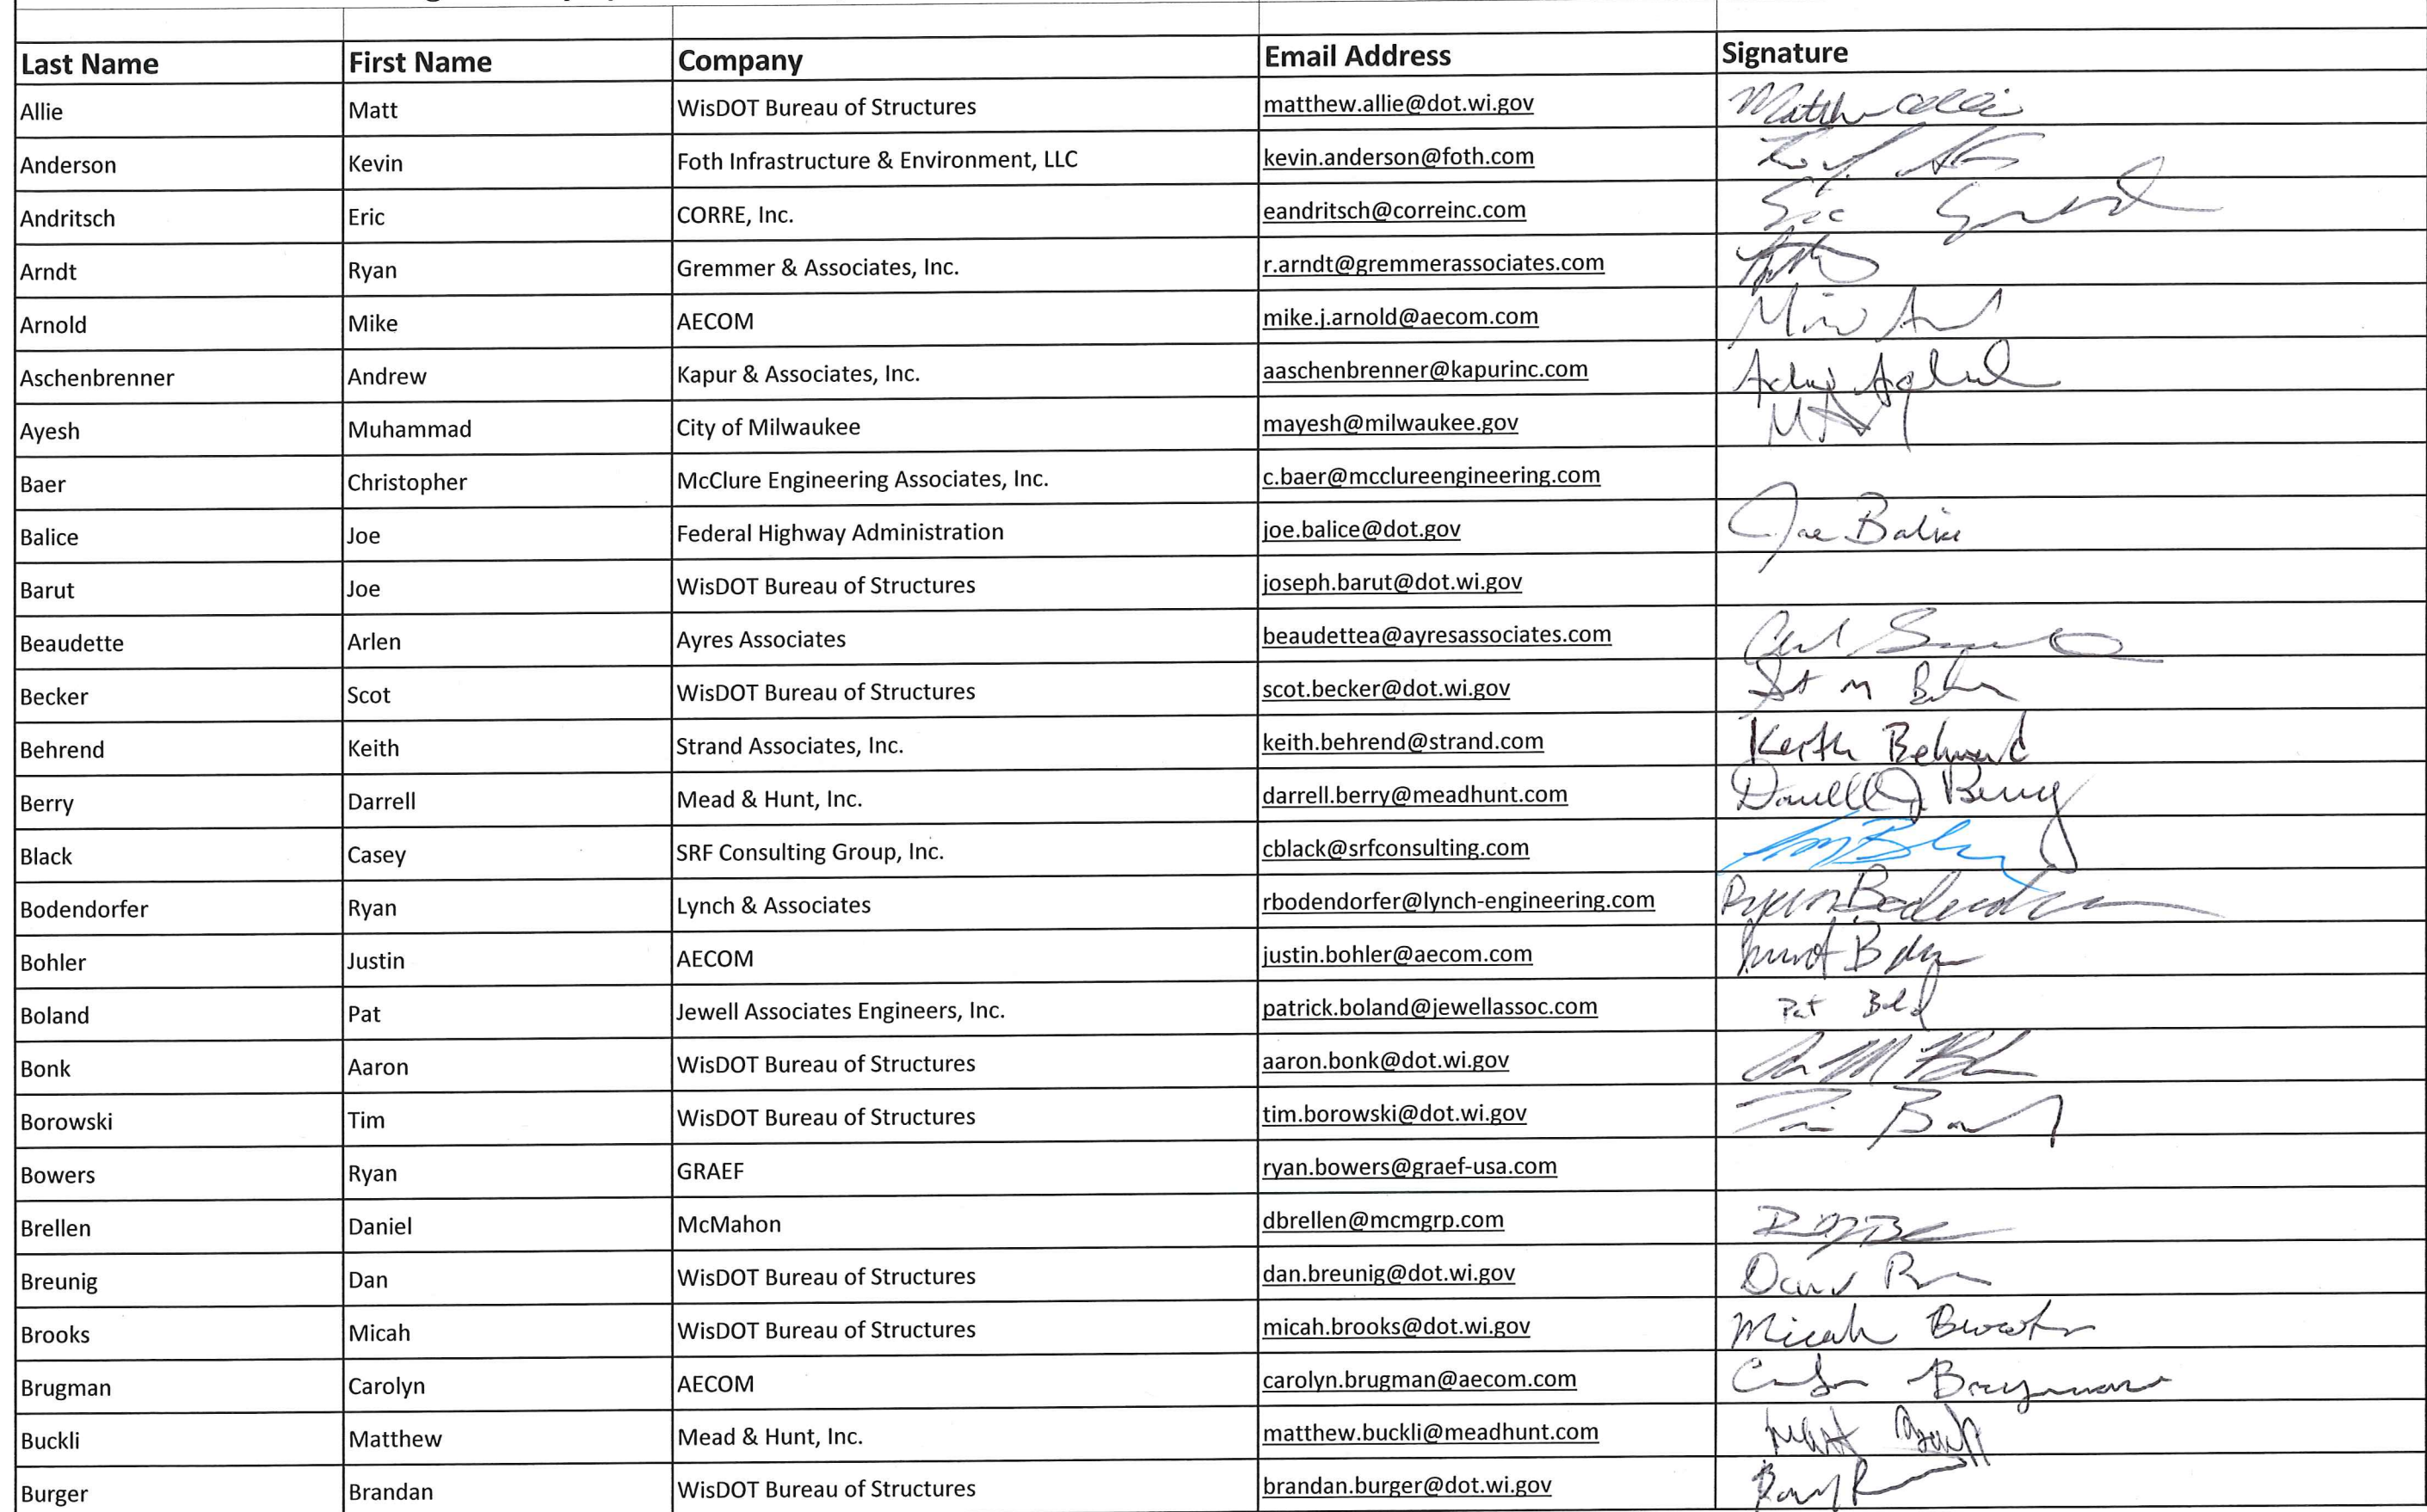 Last Name First Name Company Email Address Signature
Allie Matt WisDOT Bureau of Structures matthew.allie@dot.wi.gov
Anderson Kevin Foth Infrastructure & Environment, LLC kevin.anderson@foth.com
Andritsch Eric CORRE, Inc. eandritsch@correinc.com
Arndt Ryan Gremmer & Associates, Inc. r.arndt@gremmerassociates.com
Arnold Mike AECOM mike.j.arnold@aecom.com
Aschenbrenner Andrew Kapur & Associates, Inc. aaschenbrenner@kapurinc.com
Ayesh Muhammad City of Milwaukee mayesh@milwaukee.gov
Baer Christopher McClure Engineering Associates, Inc. c.baer@mcclureengineering.com
Balice Joe Federal Highway Administration joe.balice@dot.gov Joe Balice
Barut Joe WisDOT Bureau of Structures joseph.barut@dot.wi.gov
Beaudette Arlen Ayres Associates beaudettea@ayresassociates.com
Becker Scot WisDOT Bureau of Structures scot.becker@dot.wi.gov
Behrend Keith Strand Associates, Inc. keith.behrend@strand.com Keith Behrend
Berry Darrell Mead & Hunt, Inc. darrell.berry@meadhunt.com Darrell J Berry
Black Casey SRF Consulting Group, Inc. cblack@srfconsulting.com
Bodendorfer Ryan Lynch & Associates rbodendorfer@lynch-engineering.com
Bohler Justin AECOM justin.bohler@aecom.com
Boland Pat Jewell Associates Engineers, Inc. patrick.boland@jewellassoc.com Pat
Bonk Aaron WisDOT Bureau of Structures aaron.bonk@dot.wi.gov
Borowski Tim WisDOT Bureau of Structures tim.borowski@dot.wi.gov
Bowers Ryan GRAEF ryan.bowers@graef-usa.com
Brellen Daniel McMahon dbrellen@mcmgrp.com
Breunig Dan WisDOT Bureau of Structures dan.breunig@dot.wi.gov
Brooks Micah WisDOT Bureau of Structures micah.brooks@dot.wi.gov Micah Brooks
Brugman Carolyn AECOM carolyn.brugman@aecom.com
Buckli Matthew Mead & Hunt, Inc. matthew.buckli@meadhunt.com
Burger Brandan WisDOT Bureau of Structures brandan.burger@dot.wi.gov